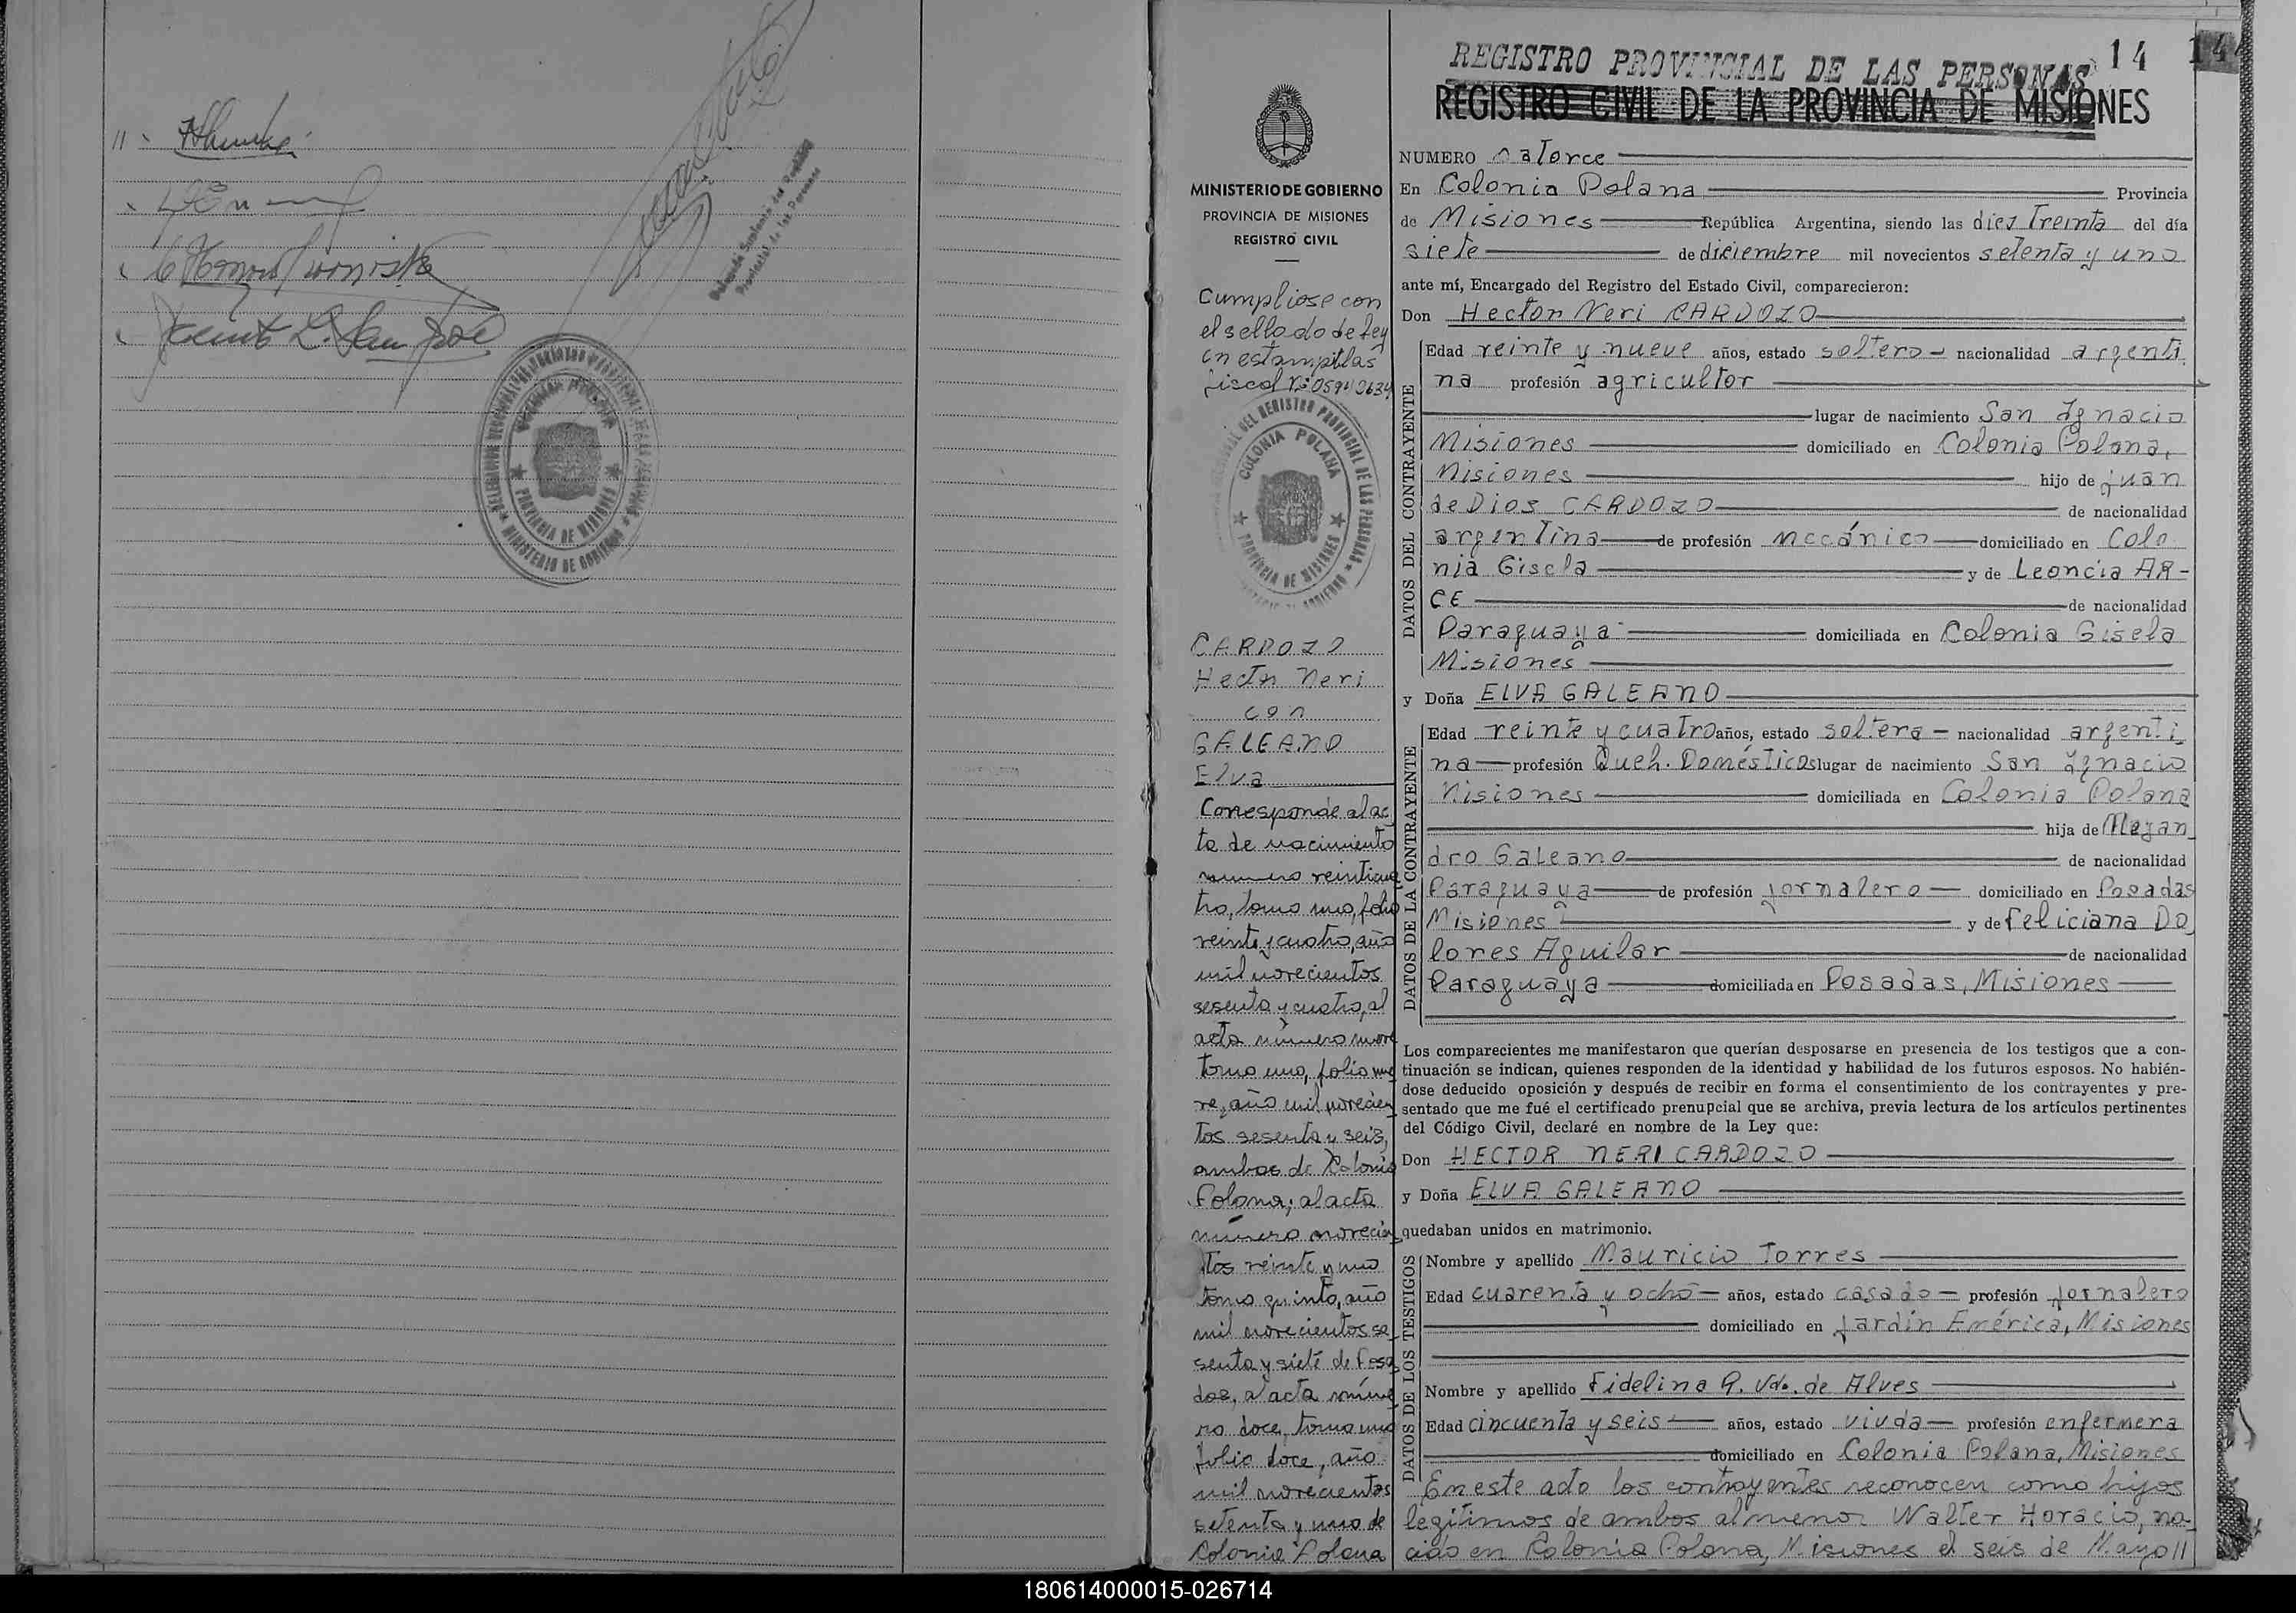 REGISTRO PROVINCIAL DE LAS PERSONAS
14
REGISTRO CIVIL DE LA PROVINCIA DE MISIONES
MINISTERIO DE GOBIERNO
PROVINCIA DE MISIONES
REGISTRO CIVIL
Cumpliose con
el sellado de ley
en estampillas
fiscal
COLONIA POLANA
PROVINCIA DE MISIONES
CARDOZO
Hector Neri
con
GALEANO
Elva
Corresponde al ac
ta de nacimiento
numero veinticua
tro, tomo uno, folio
veinte y cuatro, año
mil novecientos
sesenta y cuatro, al
acta número nueve
tomo uno, folio nue
ve, año mil novecien
tos sesenta y seis,
ambas de Colonia
Polana; al acta
número novecien
tos veinte y uno
tomo quinto, año
mil novecientos se
senta y siete de Posa
das, al acta núme
ro doce, tomo uno
folio doce, año
mil novecientos
setenta y uno de
Colonia Polana
NUMERO catorce
En Colonia Polana Provincia
de Misiones República Argentina, siendo las diez treinta del día
siete de diciembre mil novecientos setenta y uno
ante mí, Encargado del Registro del Estado Civil, comparecieron:
Don Hector Neri CARDOZO
DATOS DEL CONTRAYENTE
Edad veinte y nueve años, estado soltero nacionalidad argenti
na profesión agricultor
lugar de nacimiento San Ignacio
Misiones domiciliado en Colonia Polana,
Misiones hijo de juan
de Dios CARDOZO de nacionalidad
argentina de profesión mecánico domiciliado en Colo
nia Gisela y de Leoncia AR-
CE de nacionalidad
Paraguaya domiciliada en Colonia Gisela
Misiones
y Doña ELVA GALEANO
DATOS DE LA CONTRAYENTE
Edad veinte y cuatro años, estado soltera nacionalidad argenti
na profesión Queh. Domésticos lugar de nacimiento San Ignacio
Misiones domiciliada en Colonia Polana
hija de Alejan
dro Galeano de nacionalidad
Paraguaya de profesión jornalero domiciliado en Posadas
Misiones y de Feliciana Do
lores Aguilar de nacionalidad
Paraguaya domiciliada en Posadas, Misiones
Los comparecientes me manifestaron que querían desposarse en presencia de los testigos que a con-
tinuación se indican, quienes responden de la identidad y habilidad de los futuros esposos. No habién-
dose deducido oposición y después de recibir en forma el consentimiento de los contrayentes y pre-
sentado que me fué el certificado prenupcial que se archiva, previa lectura de los artículos pertinentes
del Código Civil, declaré en nombre de la Ley que:
Don HECTOR NERI CARDOZO
y Doña ELVA GALEANO
quedaban unidos en matrimonio.
DATOS DE LOS TESTIGOS
Nombre y apellido Mauricio Torres
Edad cuarenta y ocho años, estado casado profesión jornalero
domiciliado en jardin América, Misiones
Nombre y apellido Fidelina R. Vda. de Alves
Edad cincuenta y seis años, estado viuda profesión enfermera
domiciliado en Colonia Polana, Misiones
En este acto los contrayentes reconocen como hijos
legitimos de ambos al menor Walter Horacio, na-
cido en Colonia Polana, Misiones el seis de Mayo //
180614000015-026714